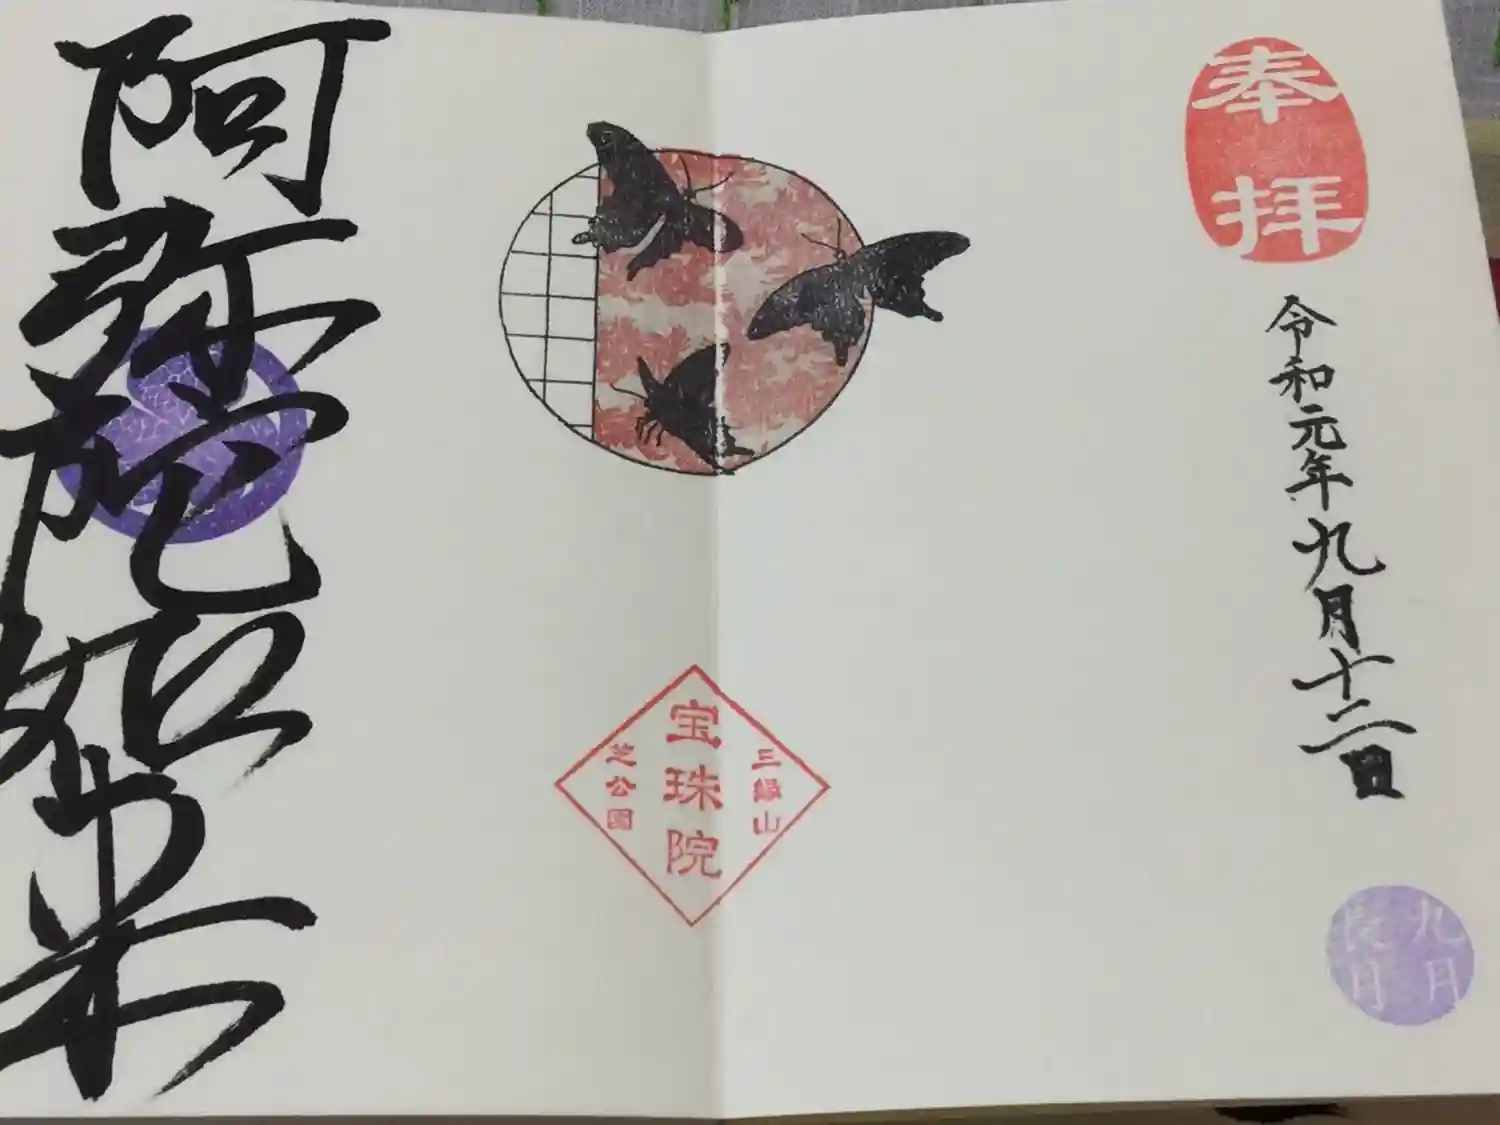 奉拝
令和元年九月十二日
九月
長月
三縁山
宝珠院
芝公園
阿弥陀如来